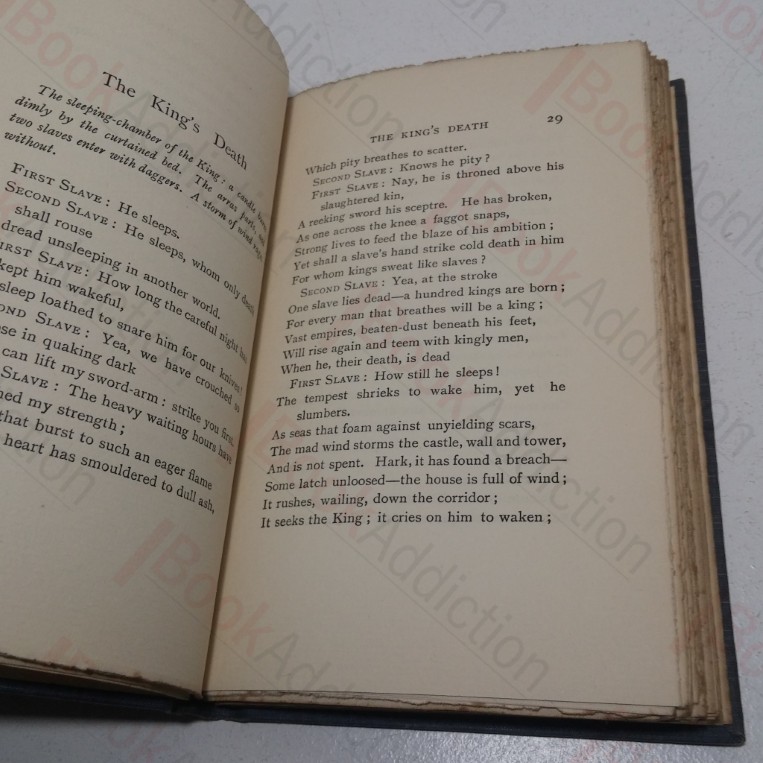 The King's Death
The sleeping-chamber of the King: a candle
dimly by the curtained bed. The arras parts, and
two slaves enter with daggers. A storm of wind
without.
FIRST SLAVE: He sleeps.
SECOND SLAVE: He sleeps, whom only death
shall rouse
dread unsleeping in another world.
FIRST SLAVE: How long the careful night has
kept him wakeful,
sleep loathed to snare him for our knives!
OND SLAVE: Yea, we have crouched so
se in quaking dark
can lift my sword-arm: strike you first.
SLAVE: The heavy waiting hours have
ned my strength;
that burst to such an eager flame
heart has smouldered to dull ash,
THE KING'S DEATH 29
Which pity breathes to scatter.
SECOND SLAVE: Knows he pity?
FIRST SLAVE: Nay, he is throned above his
slaughtered kin,
A reeking sword his sceptre. He has broken,
As one across the knee a faggot snaps,
Strong lives to feed the blaze of his ambition;
Yet shall a slave's hand strike cold death in him
For whom kings sweat like slaves?
SECOND SLAVE: Yea, at the stroke
One slave lies dead—a hundred kings are born;
For every man that breathes will be a king;
Vast empires, beaten-dust beneath his feet,
Will rise again and teem with kingly men,
When he, their death, is dead
FIRST SLAVE: How still he sleeps!
The tempest shrieks to wake him, yet he
slumbers.
As seas that foam against unyielding scars,
The mad wind storms the castle, wall and tower,
And is not spent. Hark, it has found a breach—
Some latch unloosed—the house is full of wind;
It rushes, wailing, down the corridor;
It seeks the King; it cries on him to waken;
BookAddiction